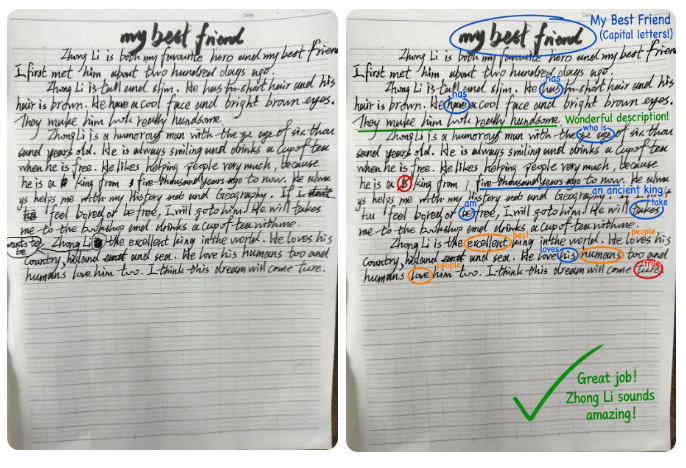 Date
my best friend
Zhong Li is both my favourite hero and my best frien
I first met him about two hundred days ago.
Zhong Li is tall and slim. He has short hair and his
hair is brown. He have a cool face and bright brown eyes.
They make him look really handsome.
Zhong Li is a humorous man with the age of six thou
sand years old. He is always smiling and drinks a cup of tea
when he is free. He likes helping people very much, because
he is a king from five thousand years ago to now. He alwa
ys helps me with my history and Geography. If I
feel bored or be free, I will go to him. He will takes
me to the and drinks a cup of tea with me.
wants to be
Zhong Li the excellent king in the world. He loves his
country, his land and sea. He love his humans too and
humans love him two. I think this dream will come ture.
Date
my best friend
My Best Friend
(Capital letters!)
Zhong Li is both my favourite hero and my best frien
I first met him about two hundred days ago.
has
Zhong Li is tall and slim. He has short hair and his
has
hair is brown. He have a cool face and bright brown eyes.
They make him look really handsome.
Wonderful description!
who is
Zhong Li is a humorous man with the age of six thou
sand years old. He is always smiling and drinks a cup of tea
when he is free. He likes helping people very much, because
he is a king from five thousand years ago to now. He alwa
an ancient king
ys helps me with my history and Geography. If I
am
take
feel bored or be free, I will go to him. He will takes
me to the and drinks a cup of tea with me.
best
people
Zhong Li is the excellent king in the world. He loves his
loves
country, his land and sea. He love his humans too and
people
true
humans love him two. I think this dream will come ture.
Great job!
Zhong Li sounds
amazing!